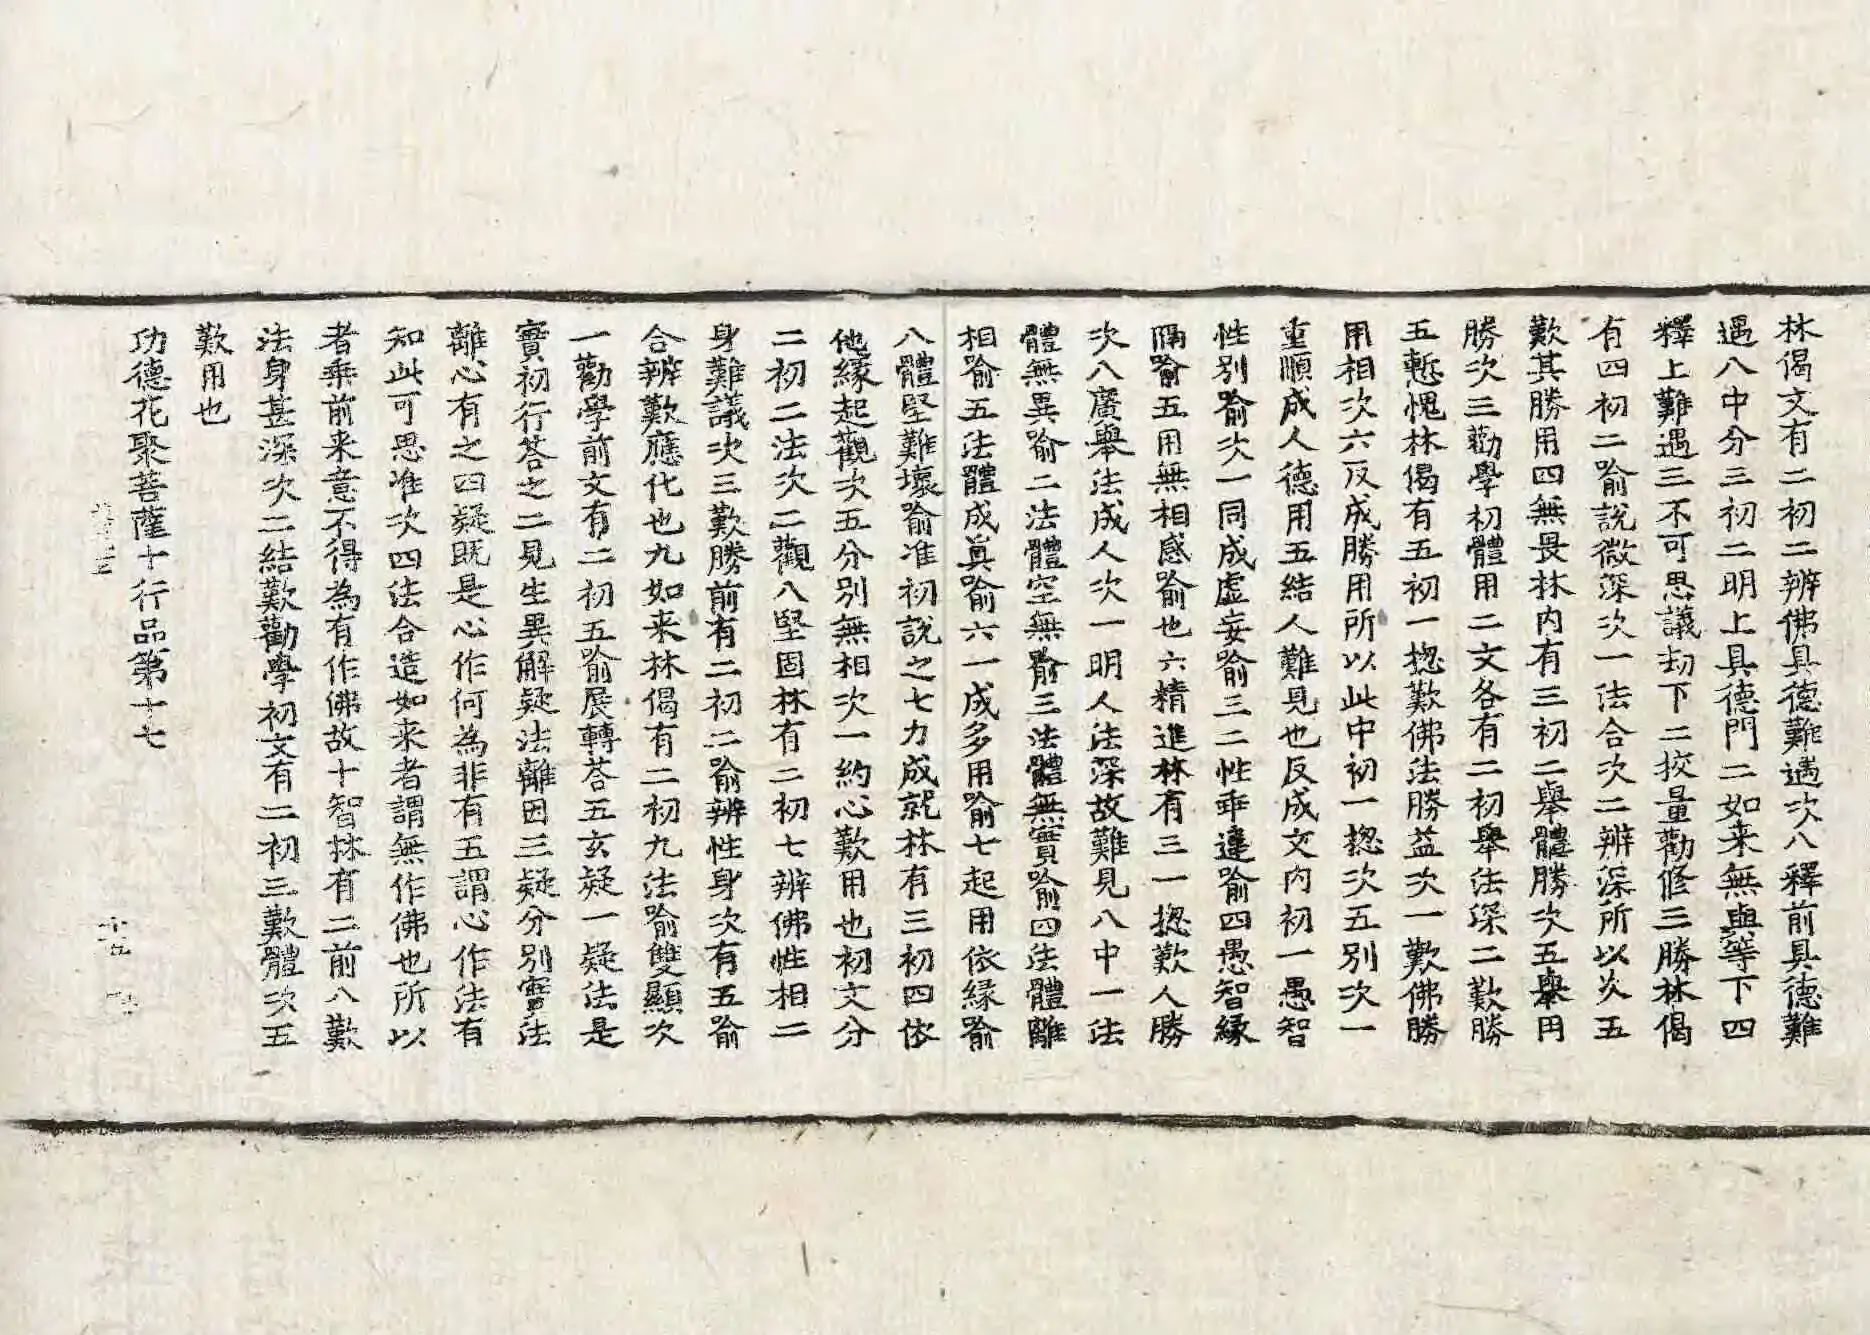 林偈文有二初二辨佛具德難遇次八釋前具德難
遇八中分三初二明上具德門二如来無與等下四
釋上難遇三不可思議劫下二挍量勸修三勝林偈
有四初二喻說微深次一法合次二辨深所以次五
歎其勝用四無畏林内有三初二舉體勝次五舉用
勝次三勸學初體用二文各有二初舉法深二歎勝
五慙愧林偈有五初一揔歎佛法勝益次一歎佛勝
用相次六反成勝用所以此中初一揔次五別次一
重順成人德用五結人難見也反成文内初一愚智
性別喻次一同成虛妄喻三二性乖違喻四愚智緣
隔喻五用無相感喻也六精進林有三一揔歎人勝
次八廣舉法成人次一明人法深故難見八中一法
體無異喻二法體空無喻三法體無實喻四法體離
相喻五法體成真喻六一成多用喻七起用依緣喻
八體堅難壞喻准初說之七力成就林有三初四依
他緣起觀次五分別無相次一約心歎用也初文分
二初二法次二觀八堅固林有二初七辨佛性相二
身難議次三歎勝前有二初二喻辨性身次有五喻
合辨歎應化也九如来林偈有二初九法喻雙顯次
一勸學前文有二初五喻展轉荅五玄疑一疑法是
實初行荅之二見生異解疑法離因三疑分別實法
離心有之四疑既是心作何為非有五謂心作法有
知此可思准次四法合造如来者謂無作佛也所以
者乘前来意不得為有作佛故十智林有二前八歎
法身甚深次二結歎勸學初文有二初三歎體次五
歎用也
功德花聚菩薩十行品第十七
十五